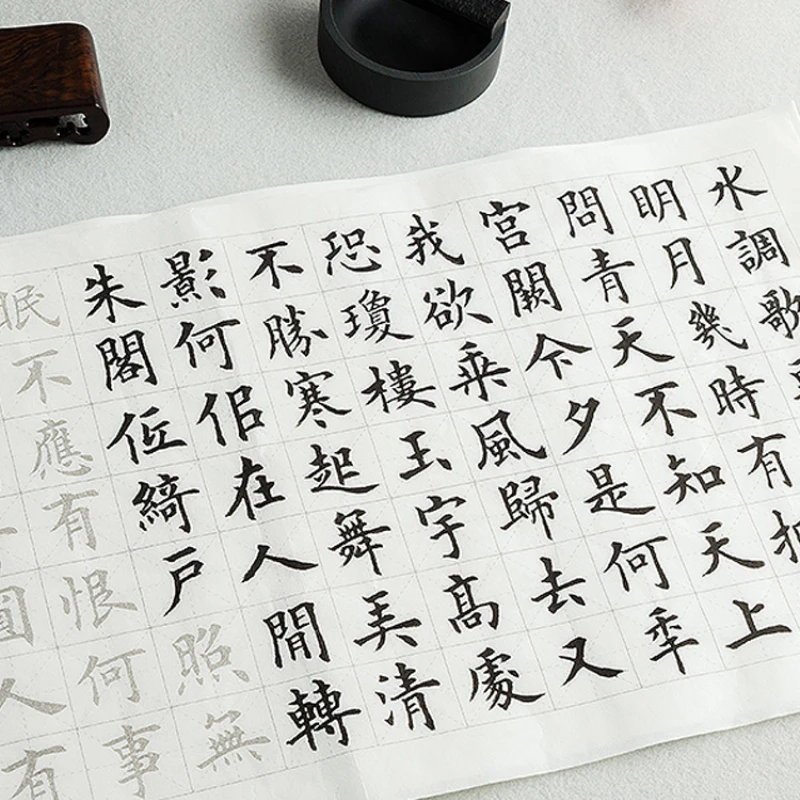 水調歌
明月幾時有把
問青天不知天上
宮闕今夕是何秊
我欲乘風歸去又
恐瓊樓玉宇高處
不勝寒起舞弄清
影何佀在人閒轉
朱閣低綺戶照無
眠不應有恨何事
圓人有